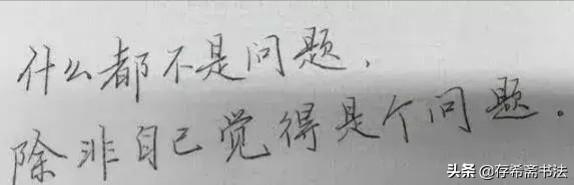 什么都不是问题，
除非自己觉得是个问题。
头条@存希斋书法